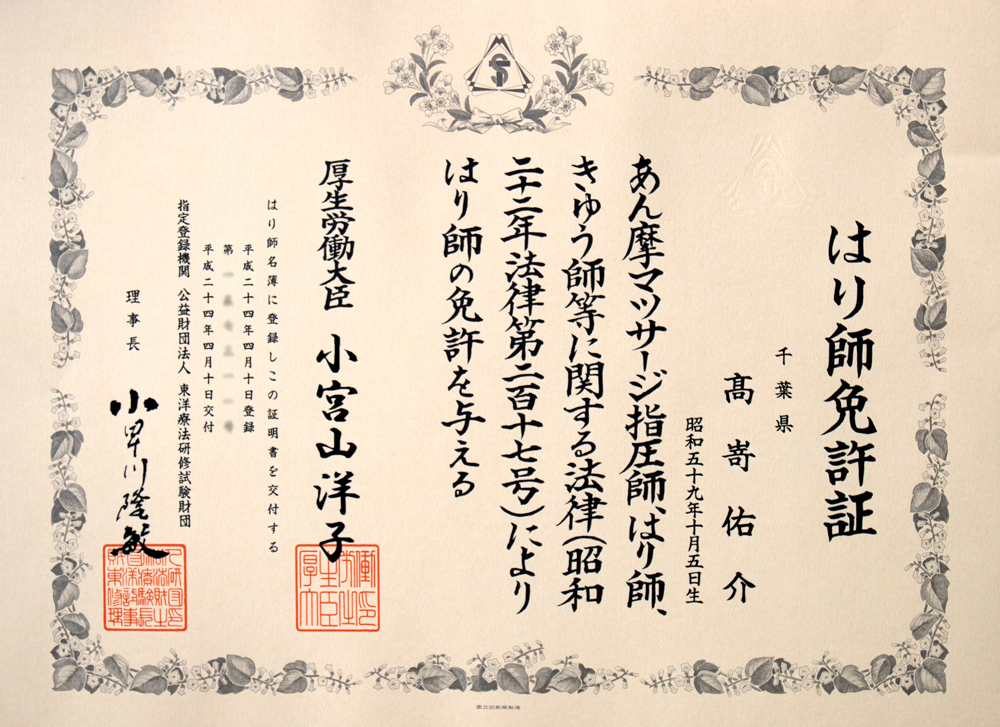 はり師免許証
千葉県
髙嵜佑介
昭和五十九年十月五日生
あん摩マツサージ指圧師、はり師、
きゆう師等に関する法律(昭和
二十二年法律第二百十七号)により
はり師の免許を与える
厚生労働大臣 小宮山洋子
はり師名簿に登録しこの証明書を交付する
平成二十四年四月十日登録
第 号
平成二十四年四月十日交付
指定登録機関 公益財団法人 東洋療法研修試験財団
理事長 小早川隆敏
国立印刷局製造